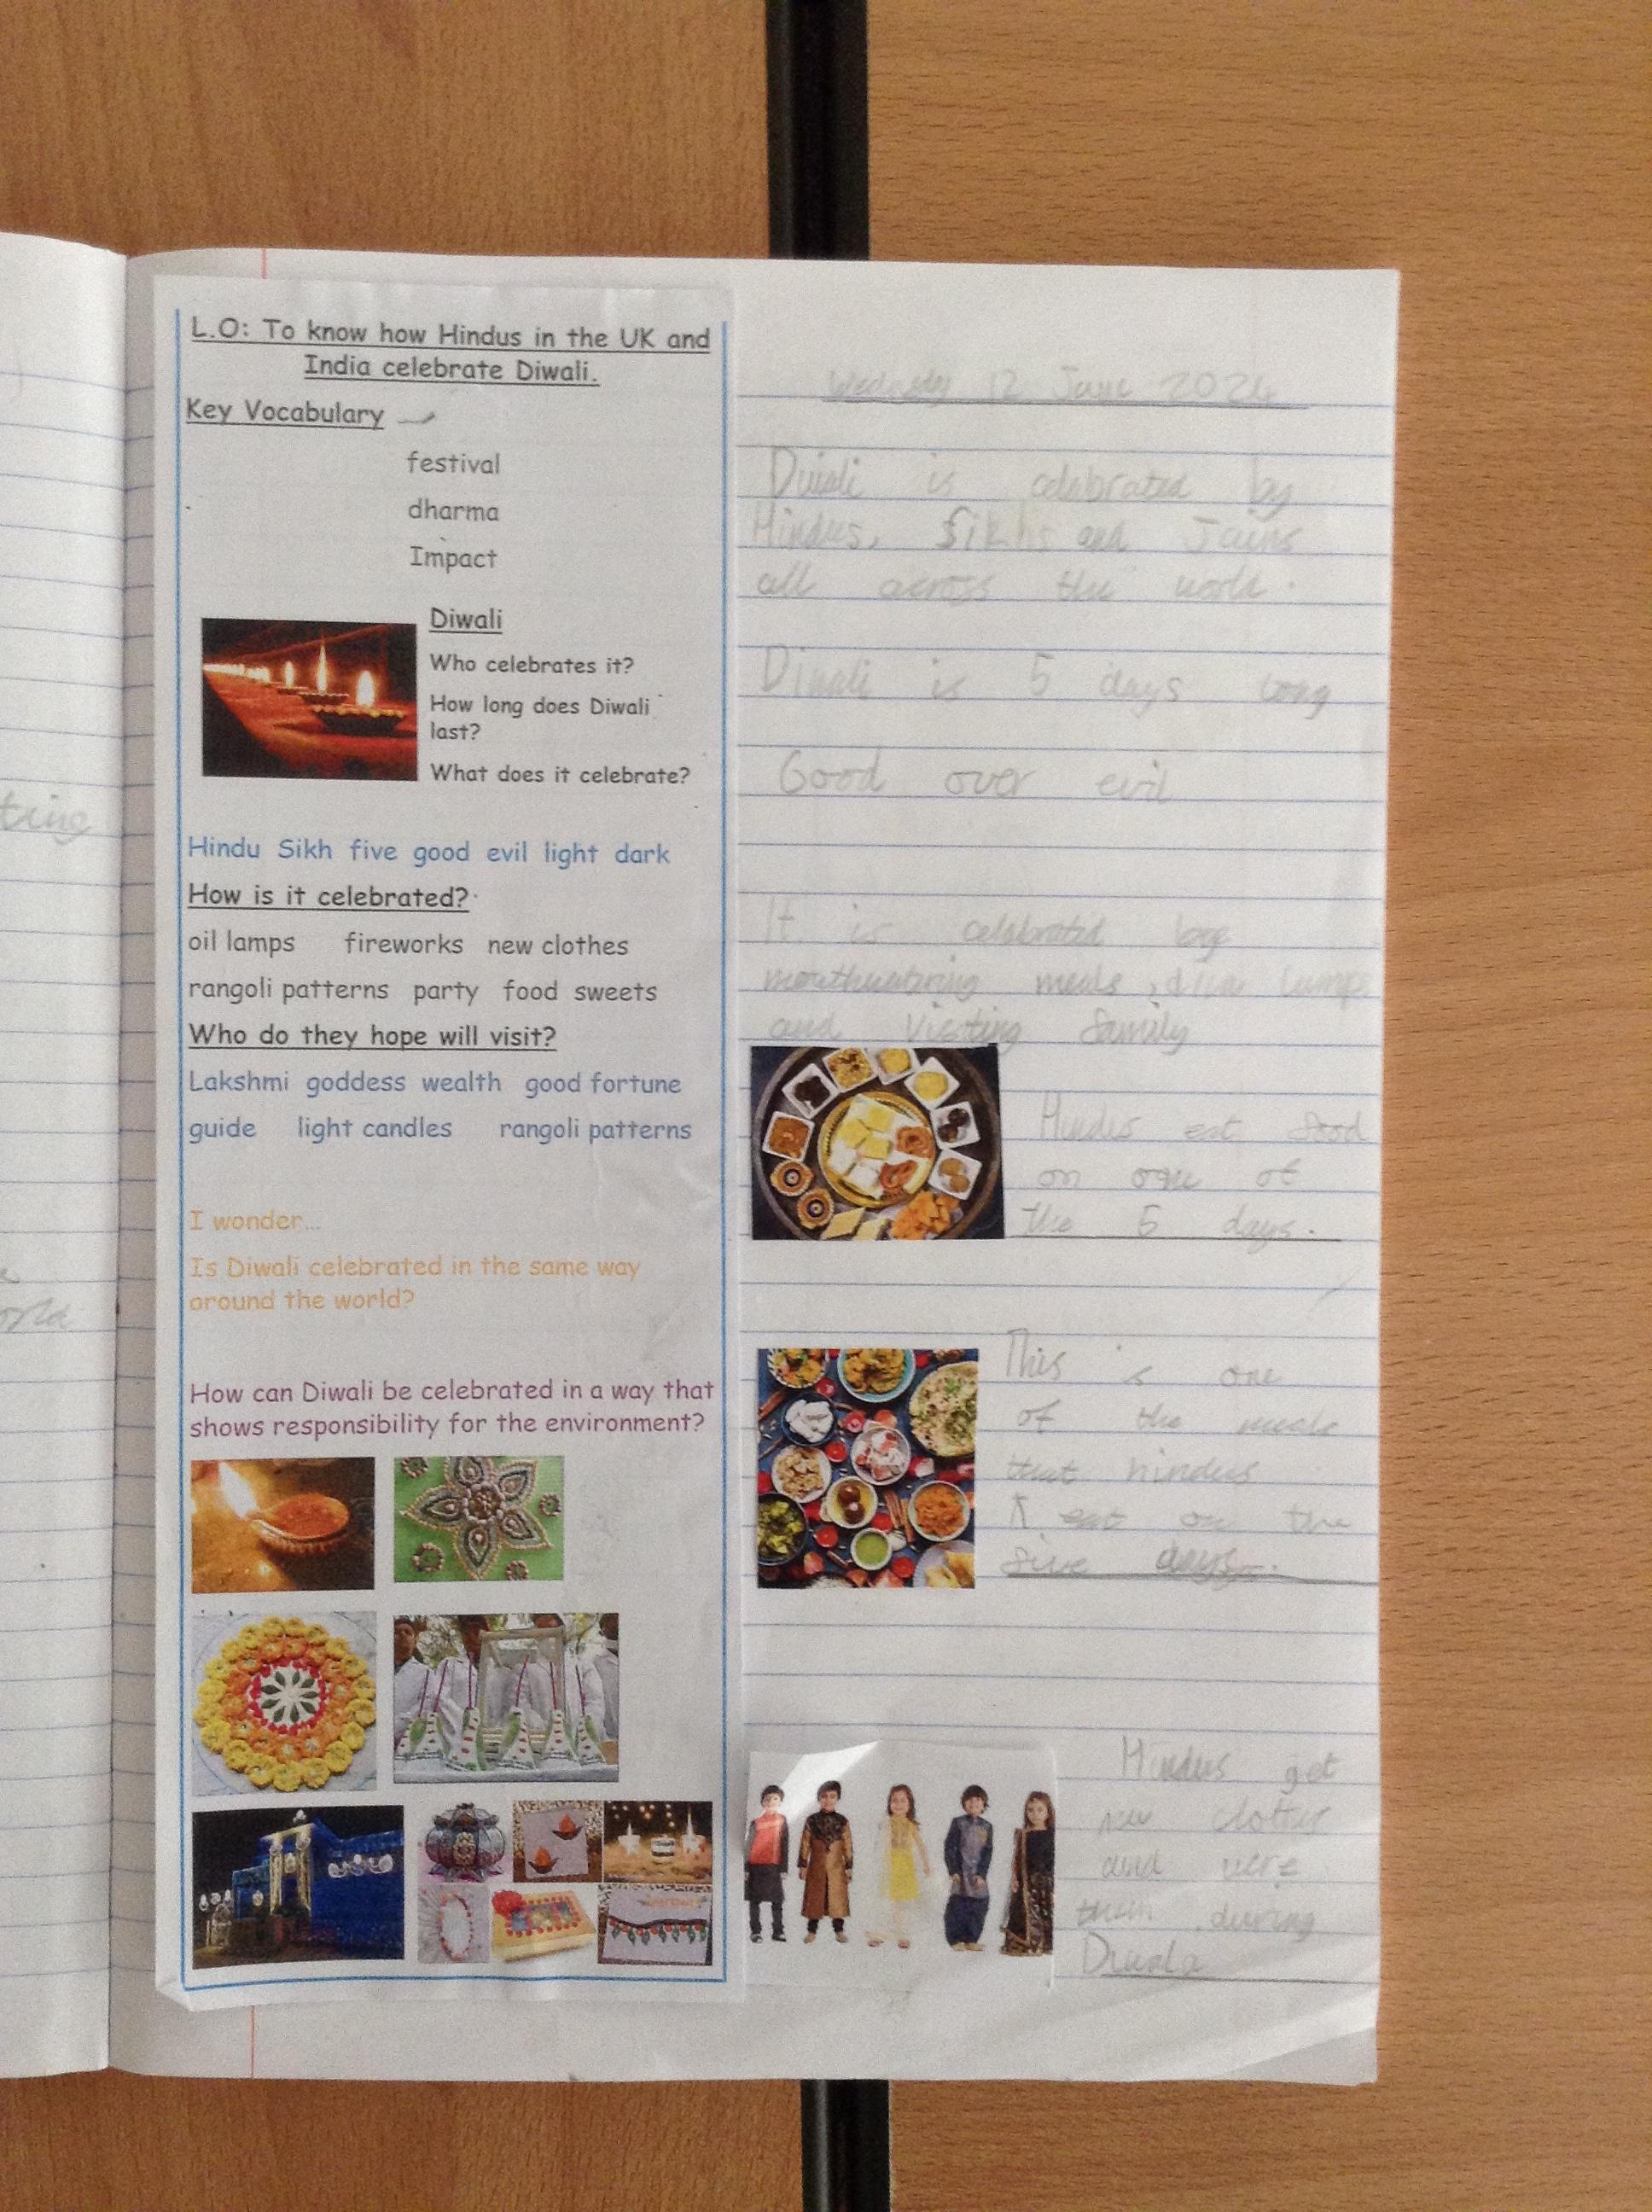 L.O: To know how Hindus in the UK and
India celebrate Diwali.
Key Vocabulary
festival
dharma
Impact
Diwali
Who celebrates it?
How long does Diwali
last?
What does it celebrate?
Hindu Sikh five good evil light dark
How is it celebrated?
oil lamps fireworks new clothes
rangoli patterns party food sweets
Who do they hope will visit?
Lakshmi goddess wealth good fortune
guide light candles rangoli patterns
I wonder...
Is Diwali celebrated in the same way
around the world?
How can Diwali be celebrated in a way that
shows responsibility for the environment?
12 June 2024
Diwali is celebrated by
Hindus, Sikhs and Jains
all across the world.
Diwali is 5 days long
Good over evil
It is celebrated
meals, diva lamps
and family
Hindus eat food
on one of
the 5 days.
This is one
of the meals
that hindus
eat on the
five days.
Hindus get
new
and were
them during
ting